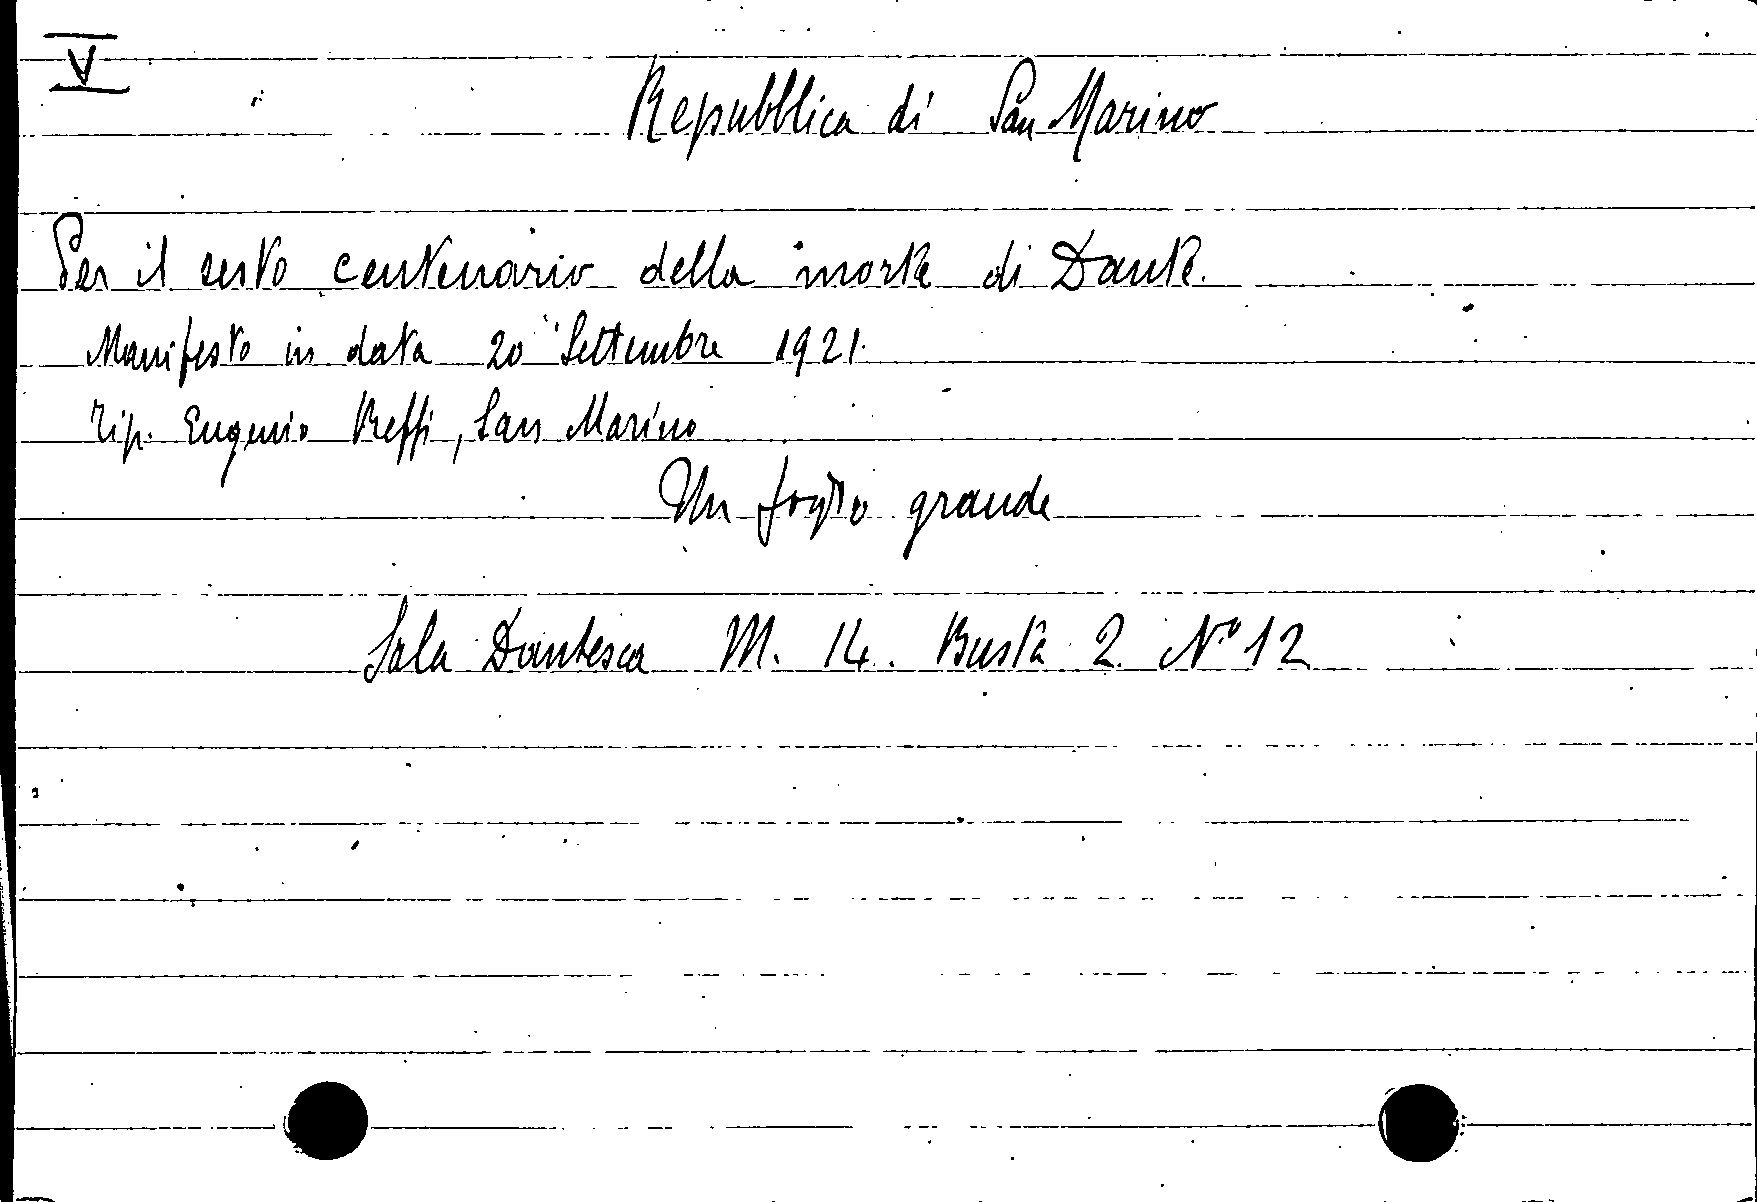 V
Repubblica di San Marino
Per il sesto centenario della morte di Dante.
Manifesto in data 20 Settembre 1921.
Tip. Eugenio Reffi, San Marino
Un foglio grande
Sala Dantesca M. 14. Busta 2 Nº 12